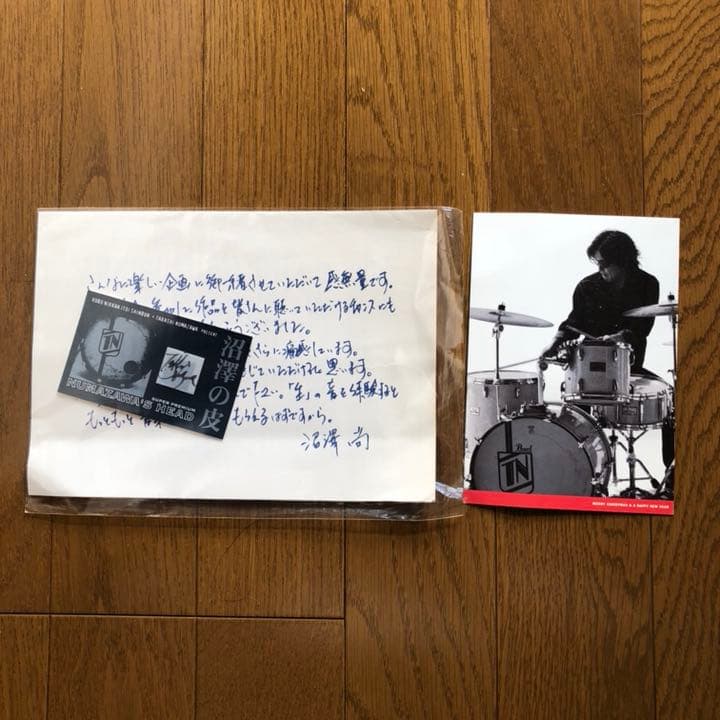 こんなに楽しい企画に御一緒させていただいて感無量です。
作品を皆さんに聴いていただけるチャンスにも
ございました。
さらに痛感しています。
じていただければと思います。
「生」の音を経験すると
もっともっと音楽
もらえるはずですから。
沼澤 尚
KOBU NIKKANITSI SHINBUN + TAKASHI NUMAZAWA PRESENT
TN
沼澤の皮
SUPER PREMIUM
NUMAZAWA'S HEAD
Pearl
TN
MERRY CHRISTMAS & A HAPPY NEW YEAR